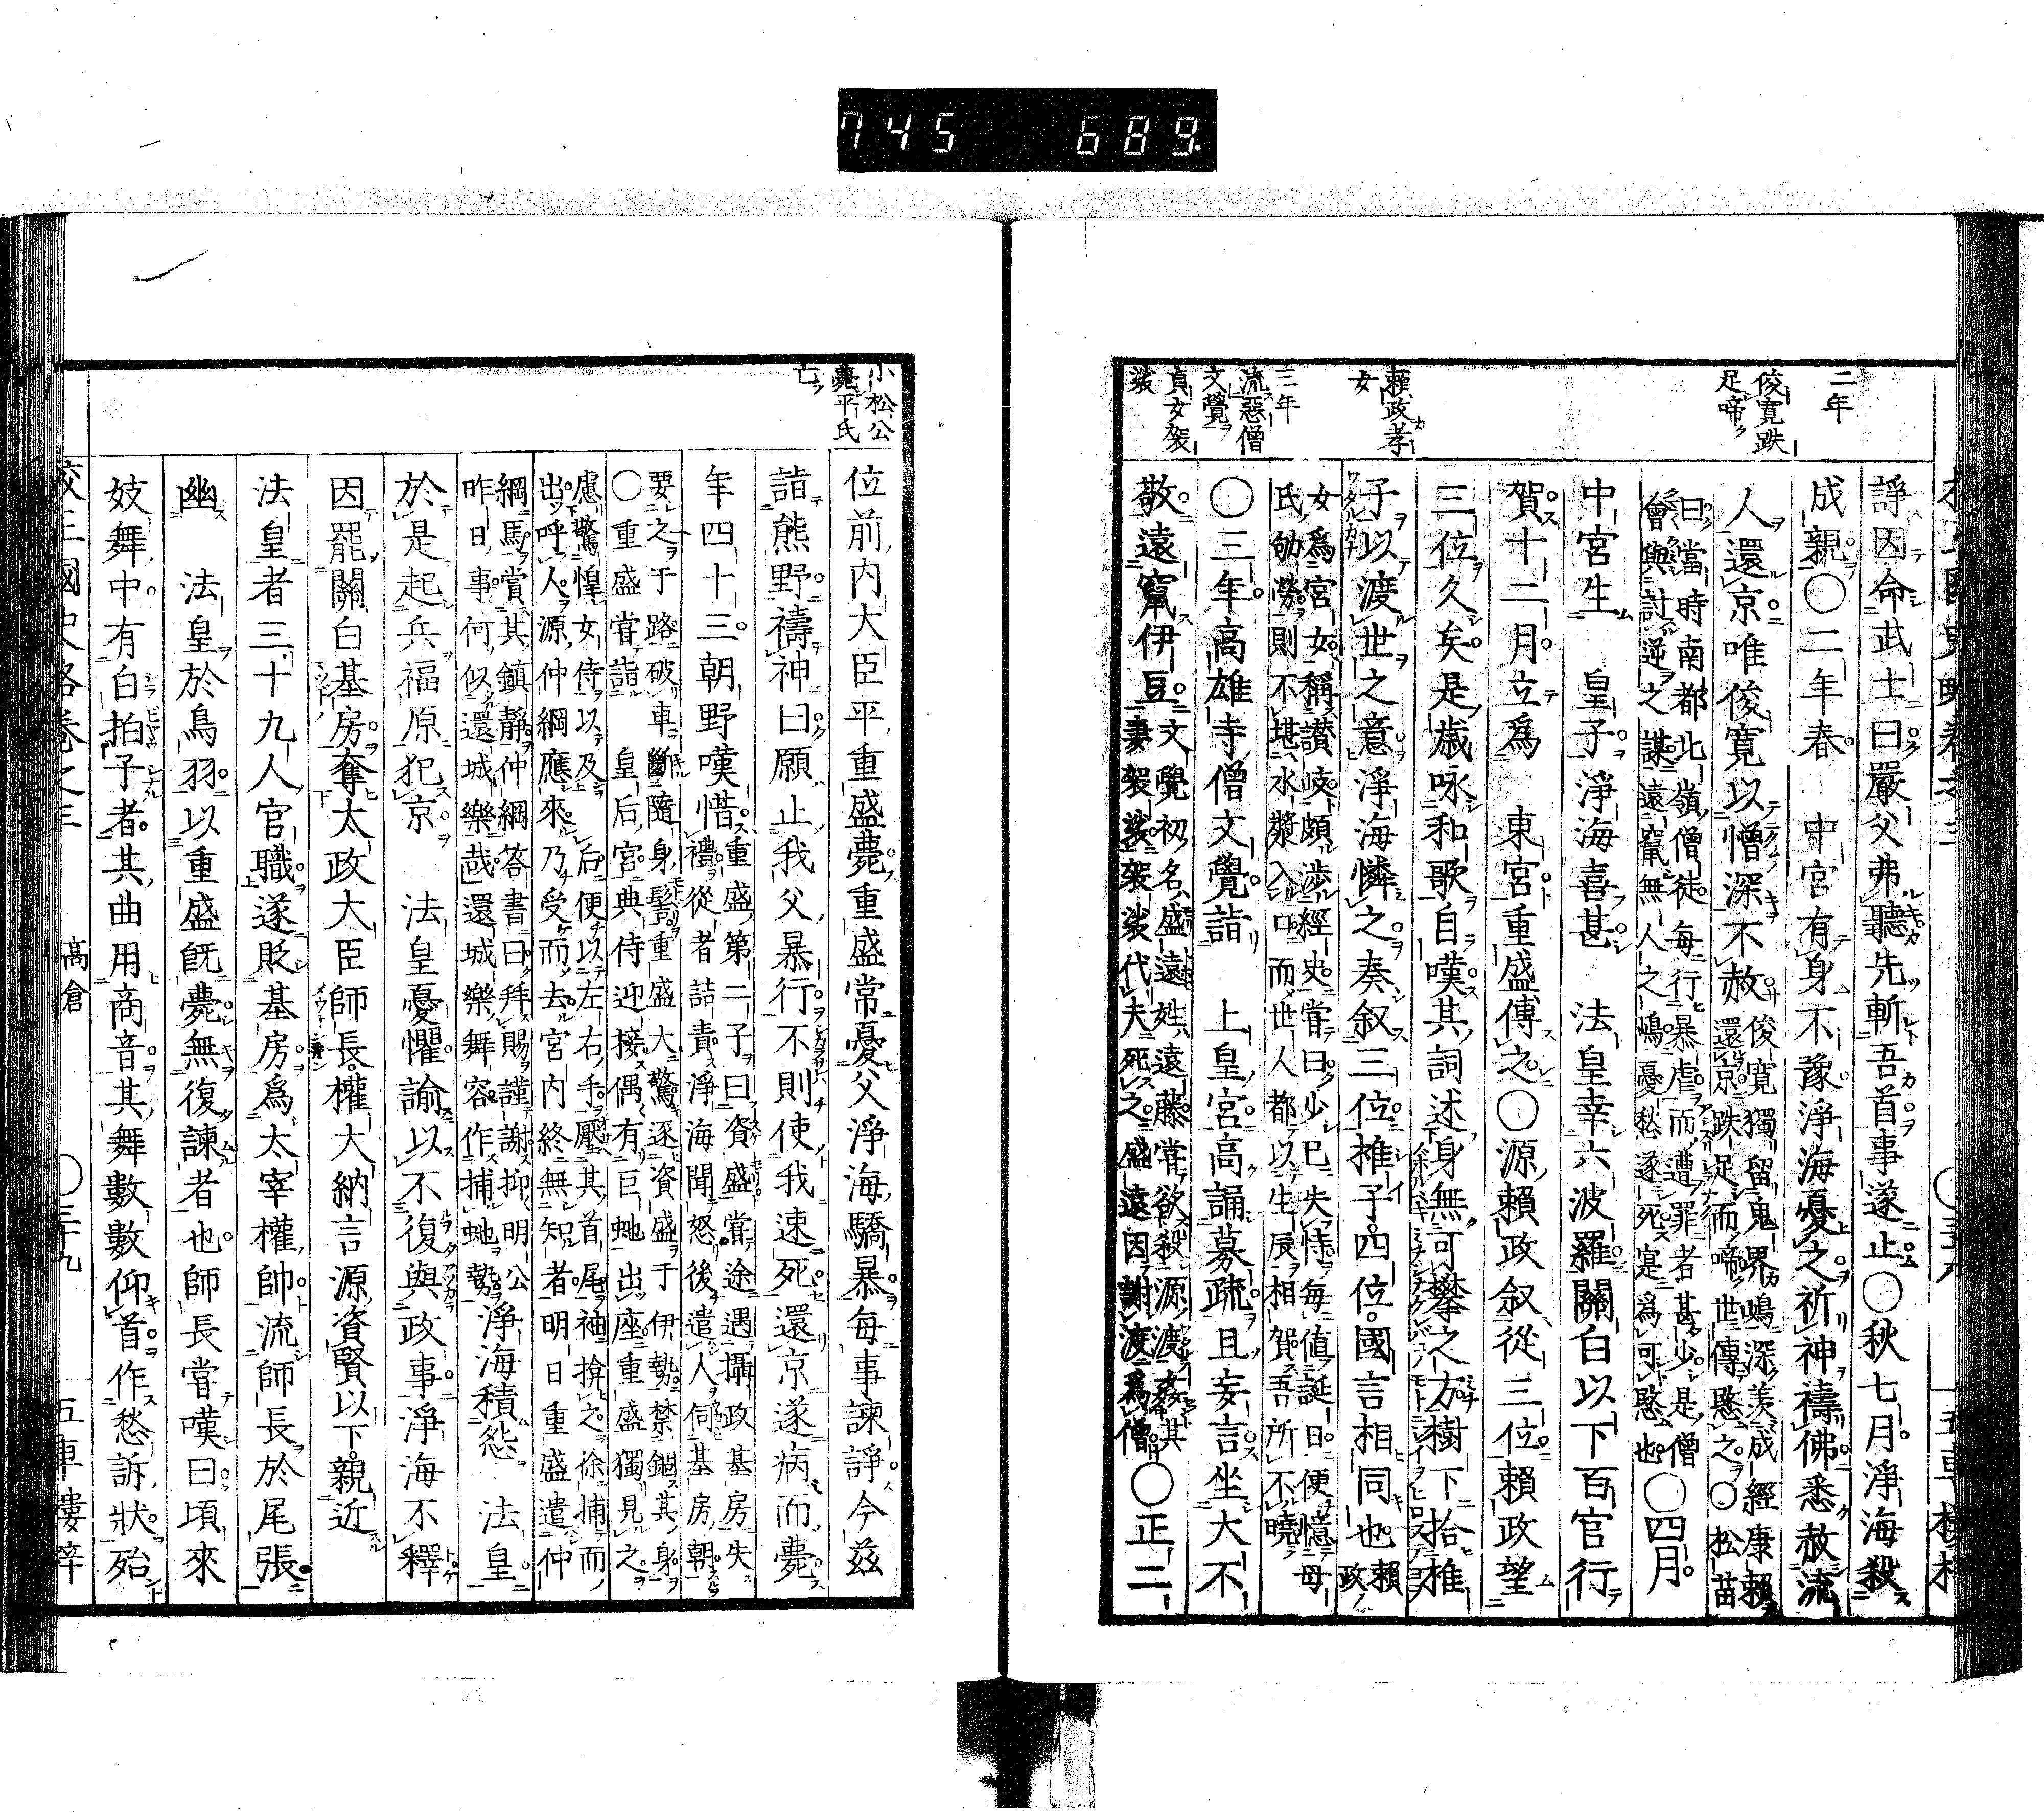 745 689
二年
俊寛跌
足啼
賴政孝
女
三年
流惡僧
文覺
貞女袈
裟
諍因命武士曰嚴父弗聽先斬吾首事遂止〇秋七月淨海殺
成親〇二年春　中宮有身不豫淨海憂之祈神禱佛悉赦流
人還京唯俊寛以憎深不赦
俊寛獨留鬼界嶋深羨成經康賴
還京跌足而啼世傳愍之〇松苗
曰當時南都北嶺僧徒每行暴虐而遭罪者甚少是僧
會與討逆之謀遠竄無人之嶋憂愁遂死寔爲可愍也
〇四月
中宮生　皇子淨海喜甚　法皇幸六波羅關白以下百官行
賀十二月立爲　東宮重盛傳之〇源賴政叙從三位賴政望
三位久矣是歳咏和歌自嘆其詞述身無可攀之方樹下拾椎
子以渡世之意淨海憐之奏叙三位椎子四位國言相同也
賴政ノ
女爲宮女稱讃岐頗渉經史嘗曰少已失恃每值誕日便憶母
氏劬勞則不堪水漿入口而世人都以生辰相賀吾所不曉
〇三年高雄寺僧文覺詣　上皇宮高誦募疏且妄言坐大不
敬遠竄伊豆
文覺初名盛遠姓遠藤嘗欲殺源渡姦其
妻袈裟袈裟代夫死之盛遠因謝渡爲僧
〇正二
小松公
薨平氏
亡
位前内大臣平重盛薨重盛常憂父淨海驕暴每事諫諍今茲
詣熊野禱神曰願止我父暴行不則使我速死還京遂病而薨
年四十三朝野嘆惜
重盛第二子曰資盛嘗途遇攝政基房失
禮從者詰責淨海聞怒後遣人伺基房朝
要之于路破車斷隨身髻重盛大驚逐資盛于伊勢禁錮其身
〇重盛嘗詣　皇后宮典侍迎接偶有巨蚰出座重盛獨見之
慮驚惶女侍以及　后便以左右手壓其首尾袖揜之徐捕而
出呼人源仲綱應來乃受而去宮内終無知者明日重盛遣仲
綱馬賞其鎮靜仲綱答書曰拜賜謹謝抑明公
昨日事何似還城樂哉還城樂舞容作捕蚰勢
淨海積怨　法皇
於是起兵福原犯京　法皇憂懼諭以不復與政事淨海不釋
因罷關白基房奪太政大臣師長權大納言源資賢以下親近
法皇者三十九人官職遂貶基房爲太宰權帥流師長於尾張
幽　法皇於鳥羽以重盛既薨無復諫者也師長嘗嘆曰頃來
妓舞中有白拍子者其曲用商音其舞數數仰首作愁訴狀殆
高倉
〇三十九
五車樓梓